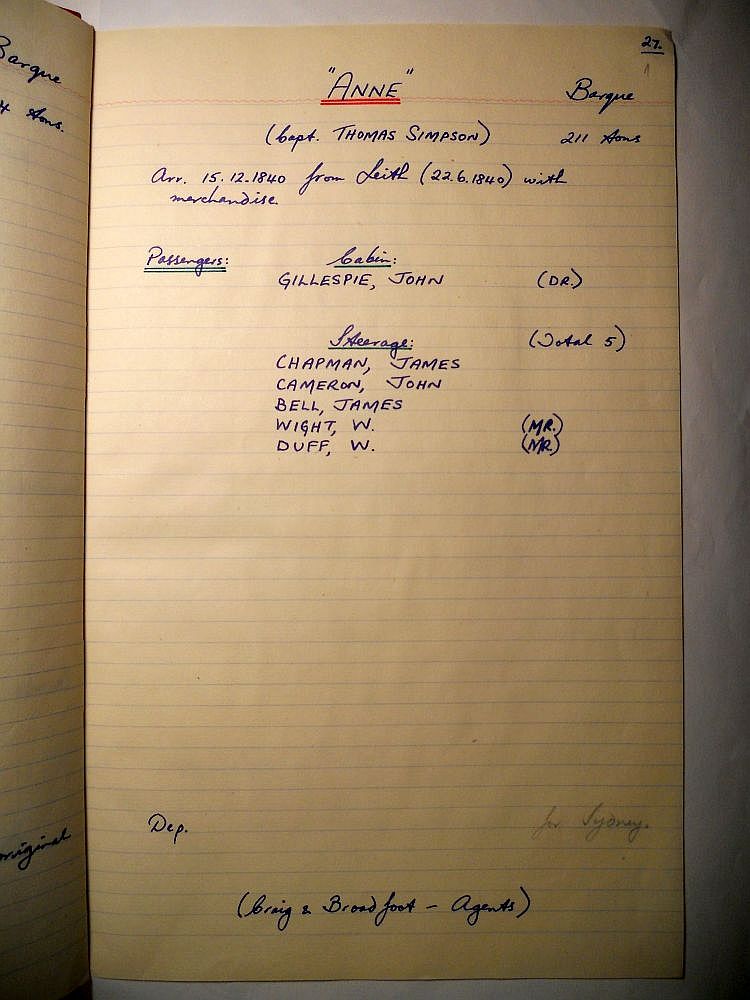 Barque
4 tons.
original
27.
"ANNE"
Barque
(Capt. THOMAS SIMPSON)
211 tons
Arr. 15.12.1840 from Leith (22.6.1840) with
merchandise.
Passengers:
Cabin:
GILLESPIE, JOHN (DR.)
Steerage: (Total 5)
CHAPMAN, JAMES
CAMERON, JOHN
BELL, JAMES
WIGHT, W. (MR.)
DUFF, W. (MR.)
Dep. for Sydney.
(Craig & Broadfoot - Agents)